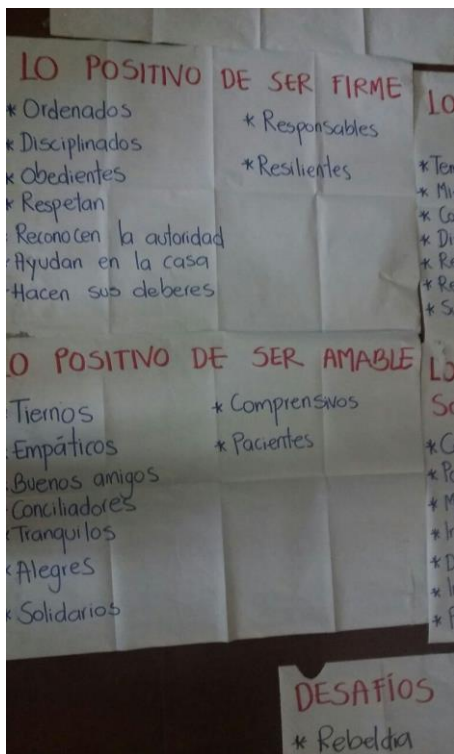 LO POSITIVO DE SER FIRME
* Ordenados
* Disciplinados
* Obedientes
* Respetan
Reconocen la autoridad
Ayudan en la casa
Hacen sus deberes
* Responsables
* Resilientes
LO POSITIVO DE SER AMABLE
Tiernos
Empáticos
Buenos amigos
Conciliadores
* Tranquilos
* Alegres
* Solidarios
* Comprensivos
* Pacientes
LO
LO
DESAFÍOS
* Rebeldia